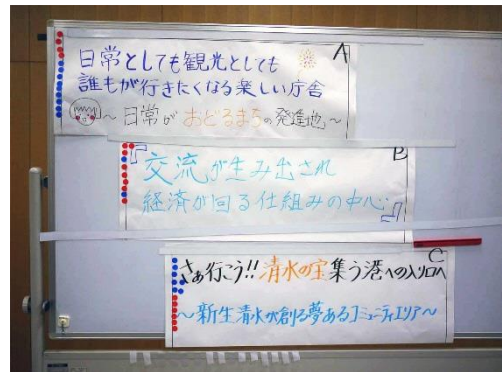 A
日常としても観光としても
誰もが行きたくなる楽しい庁舎
～日常がおどるまちの発達地～
B
『交流が生み出され
経済が回る仕組みの中心』
C
さぁ行こう!!清水の宝集う港への入り口へ
～新生清水が創る夢あるコミュニティエリア～